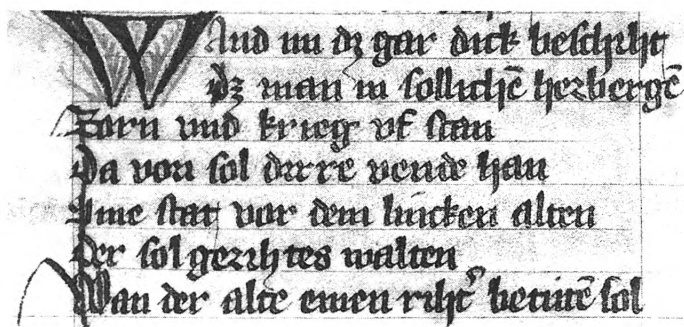 WAnd nu dz gar dick beschiht
Dz man in sollichē herbergē
Zorn vnd krieg vf stan
Da von sol dirre vende han
Sine stat vor dem lincken alten
Der sol gerehtes walten
Wan der alte einen riht' betutē sol